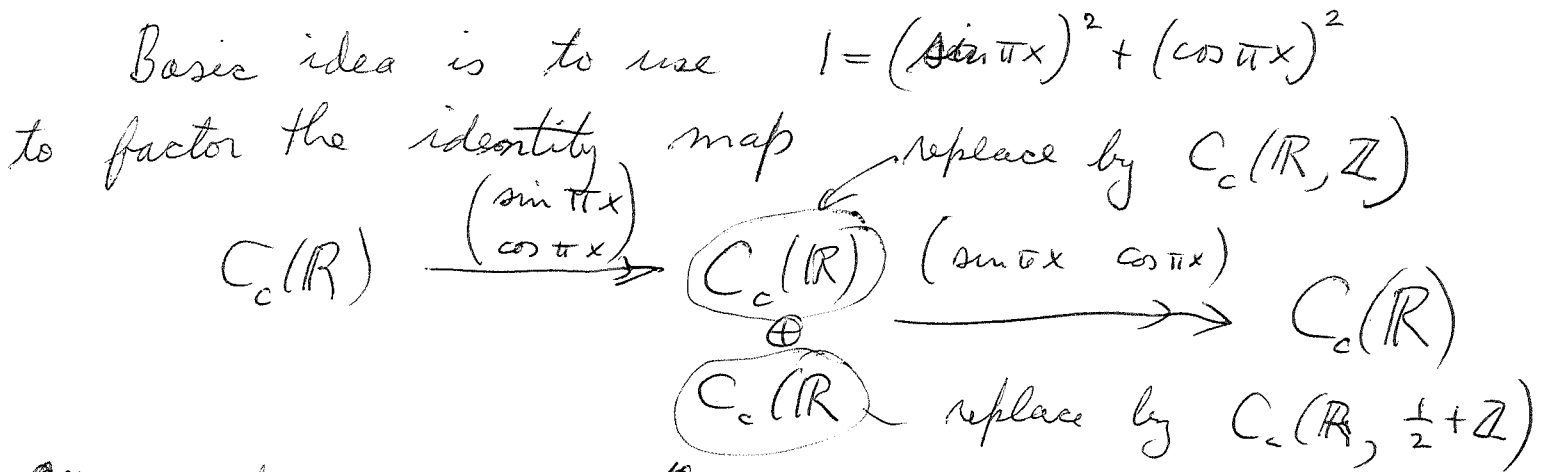 Basic idea is to use 1 = (sin πx)² + (cos πx)²
to factor the identity map replace by C_c(ℝ, ℤ)
C_c(ℝ) → (sin πx cos πx) C_c(ℝ) (sin πx cos πx) → C_c(ℝ)
⊕
C_c(ℝ replace by C_c(ℝ, ½ + ℤ)